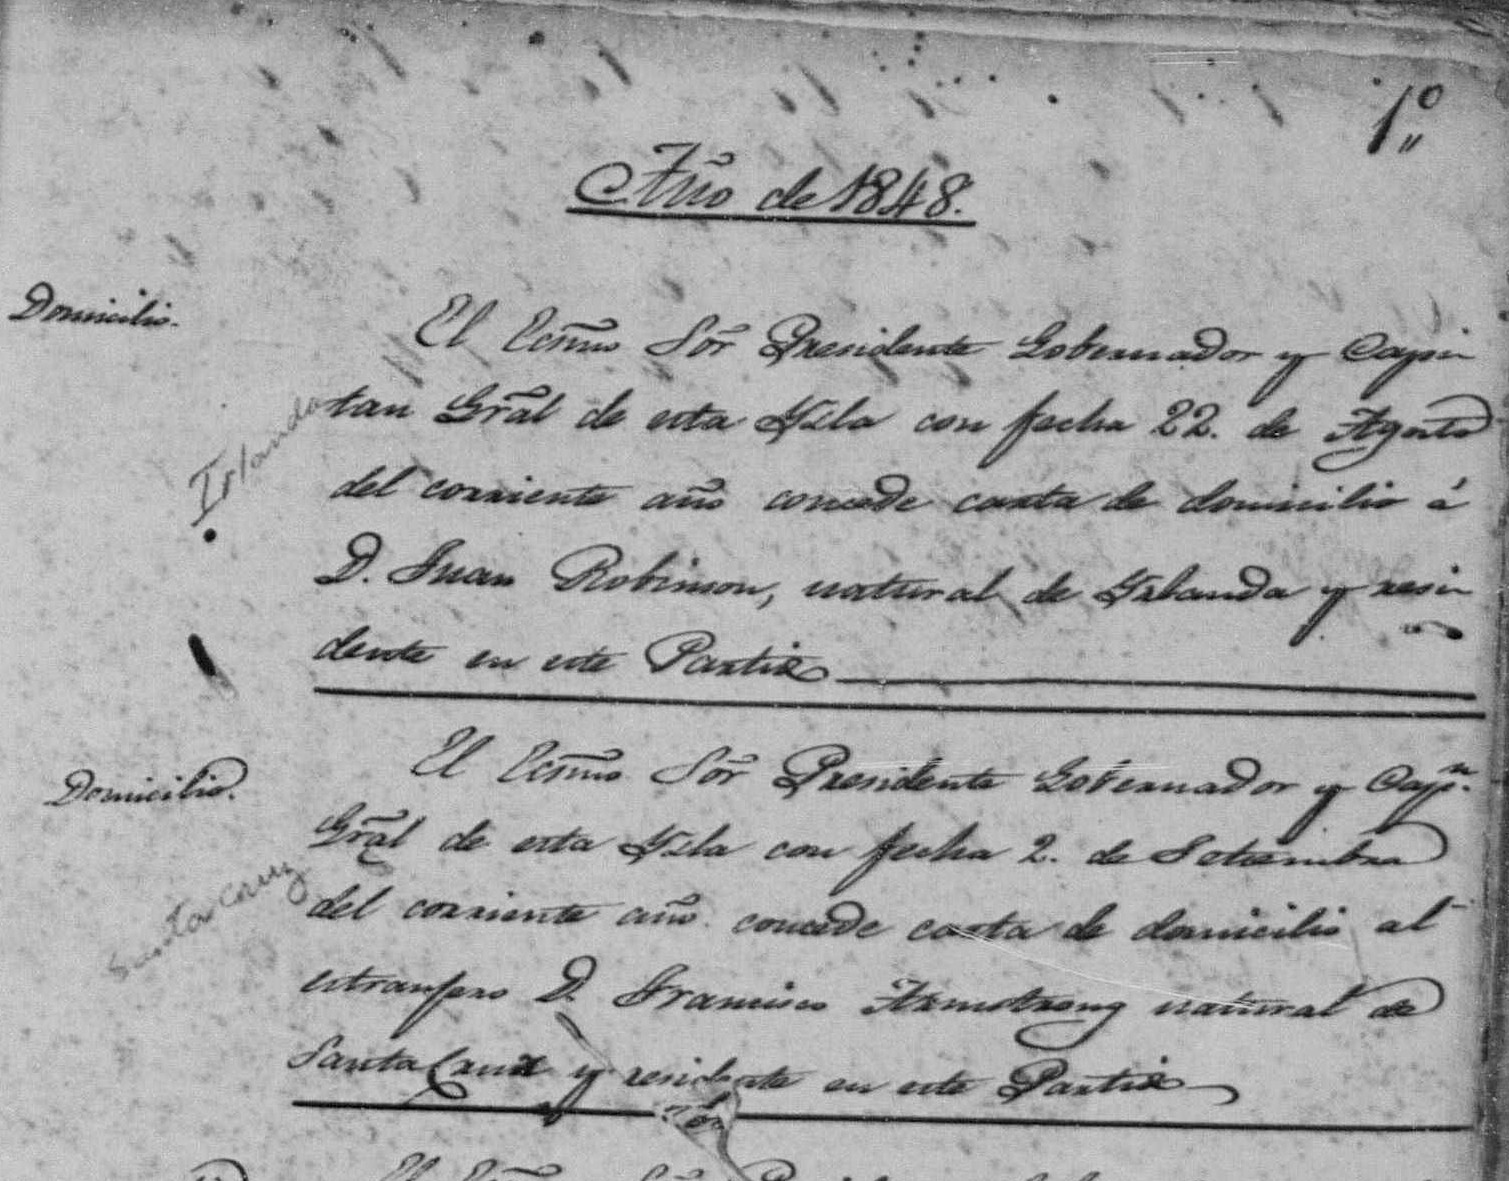 1º
Año de 1848.
Domicilio.
El Ecsmo Sõr Presidente Gobernador y Capi
tan Grãl de esta Ysla con fecha 22. de Agosto
Irlanda
del corriente año concede carta de domicilio á
D. Juan Robinson, natural de Yrlanda y resi
dente en este Partido
Domicilio.
El Ecsmo Sõr Presidente Gobernador y Capn.
Grãl de esta Ysla con fecha 2. de Setiembre
Santa Cruz
del corriente año concede carta de domicilio al
estranjero D. Francisco Armstrong natural de
Santa Cruz y residente en este Partido
El